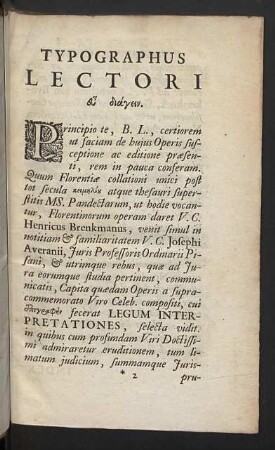 TYPOGRAPHUS
LECTORI
εὖ διάγειν.
Principio te, B. L., certiorem
ut faciam de hujus Operis sus-
ceptione ac editione præsen-
ti, rem in pauca conferam.
Quum Florentiæ collationi unici post
tot secula κειμηλίου atque thesauri super-
stitis MS. Pandectarum, ut hodie vocan-
tur, Florentinorum operam daret V. C.
Henricus Brenkmanus, venit simul in
notitiam & familiaritatem V. C. Josephi
Averanii, Juris Professoris Ordinarii Pi-
sani, & utrimque rebus, quæ ad Ju-
ra eorumque studia pertinent, commu-
nicatis, Capita quædam Operis a supra-
commemorato Viro Celeb. compositi, cui
fecerat LEGUM INTER-
PRETATIONES, selecta vidit.
in quibus cum profundam Viri Doctissi-
mi admiraretur eruditionem, tum li-
matum judicium, summamque Juris-
* 2 pru-